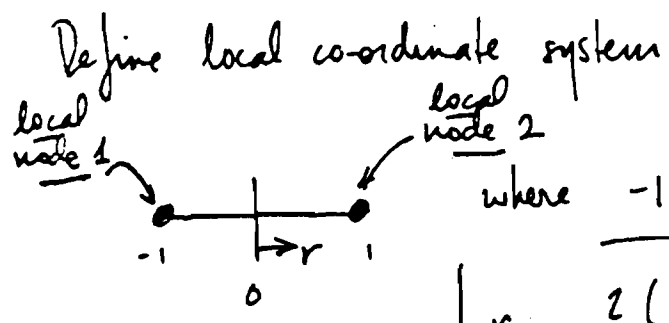 Define local co-ordinate system
local
node 1
local
node 2
where -1
-1
r
1
0
r
2 (